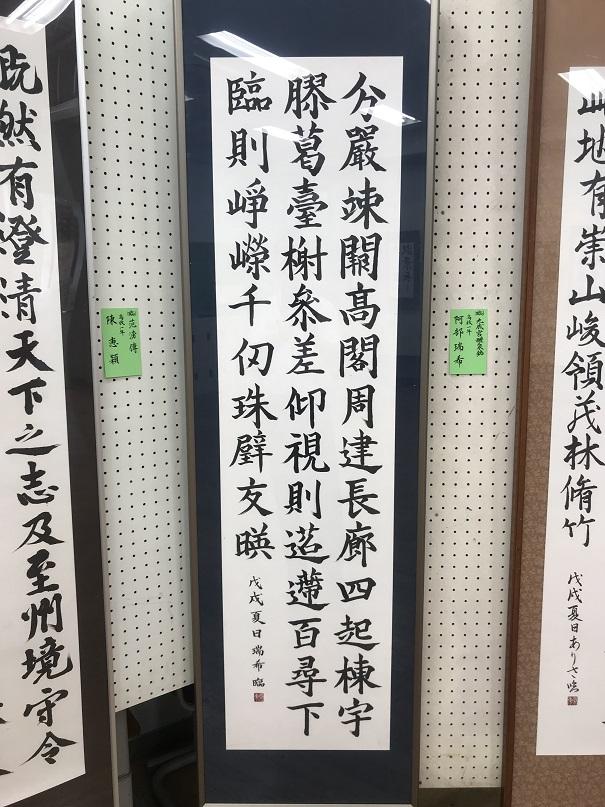 此地有崇山峻領茂林脩竹
戊戌夏日ありさ臨
臨 九成宮醴泉銘
高校一年
阿部瑞希
分嚴竦闕高閣周建長廊四起棟宇
膠葛臺榭參差仰視則迢遰百尋下
臨則崢嶸千仞珠璧交暎
戊戌夏日瑞希臨
臨 范滂傳
高校一年
陳恵穎
既然有澄清天下之志及至州境守令